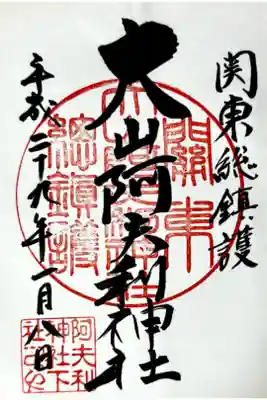 関東総鎮護
大山阿夫利神社
平成二十九年一月八日
關東總鎮護
阿夫利
神社下